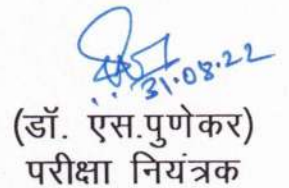 31.08.22
(डॉ. एस.पुणेकर)
परीक्षा नियंत्रक